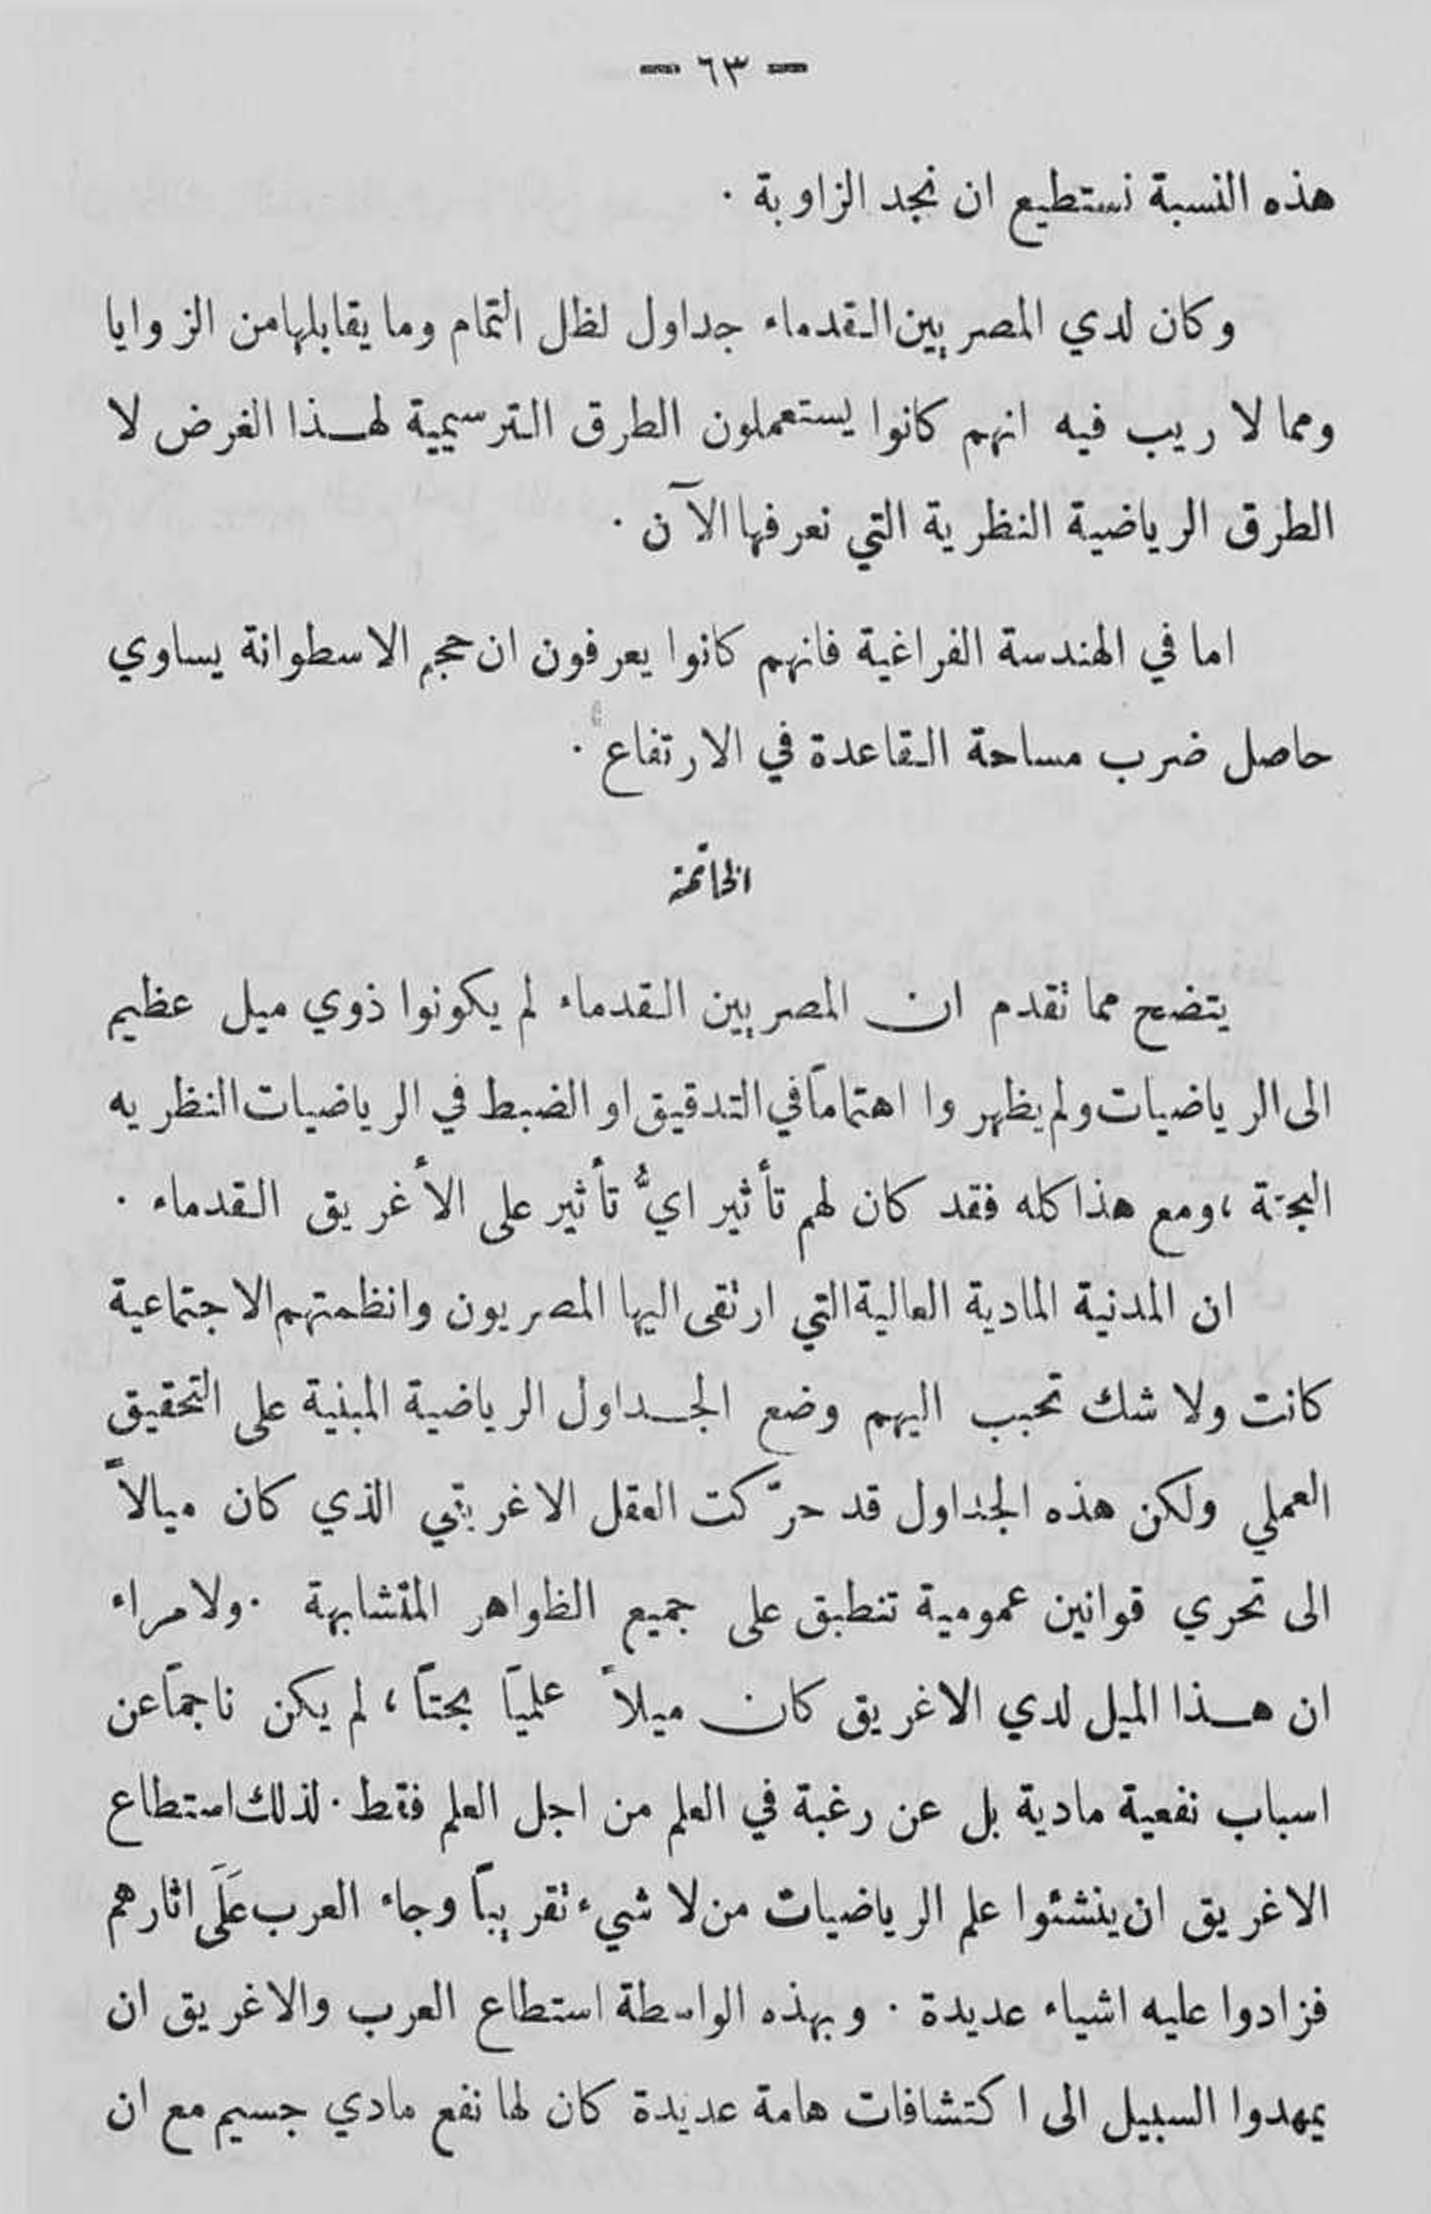 — ٦٣ —
هذه النسبة نستطيع ان نجد الزاوية ·
وكان لدي المصريين القدماء جداول لظل التمام وما يقابلها من الزوايا
ومما لا ريب فيه انهم كانوا يستعملون الطرق الترسيمية لهذا الغرض لا
الطرق الرياضية النظرية التي نعرفها الآن ·
اما في الهندسة الفراغية فانهم كانوا يعرفون ان حجم الاسطوانة يساوي
حاصل ضرب مساحة القاعدة في الارتفاع ·
الخاتمة
يتضح مما تقدم ان المصريين القدماء لم يكونوا ذوي ميل عظيم
الى الرياضيات ولم يظهروا اهتماماً في التدقيق او الضبط في الرياضيات النظريه
البحتة ، ومع هذا كله فقد كان لهم تأثير ايُّ تأثير على الأغريق القدماء ·
ان المدنية المادية العالية التي ارتقى اليها المصريون وانظمتهم الاجتماعية
كانت ولا شك تحبب اليهم وضع الجداول الرياضية المبنية على التحقيق
العملي ولكن هذه الجداول قد حرّكت العقل الاغريقي الذي كان ميالاً
الى تحري قوانين عمومية تنطبق على جميع الظواهر المتشابهة · ولا مراء
ان هذا الميل لدي الاغريق كان ميلاً علمياً بحتاً ، لم يكن ناجماً عن
اسباب نفعية مادية بل عن رغبة في العلم من اجل العلم فقط · لذلك استطاع
الاغريق ان ينشئوا علم الرياضيات من لا شيء تقريباً وجاء العرب عَلَى اثارهم
فزادوا عليه اشياء عديدة · وبهذه الواسطة استطاع العرب والاغريق ان
يمهدوا السبيل الى اكتشافات هامة عديدة كان لها نفع مادي جسيم مع ان